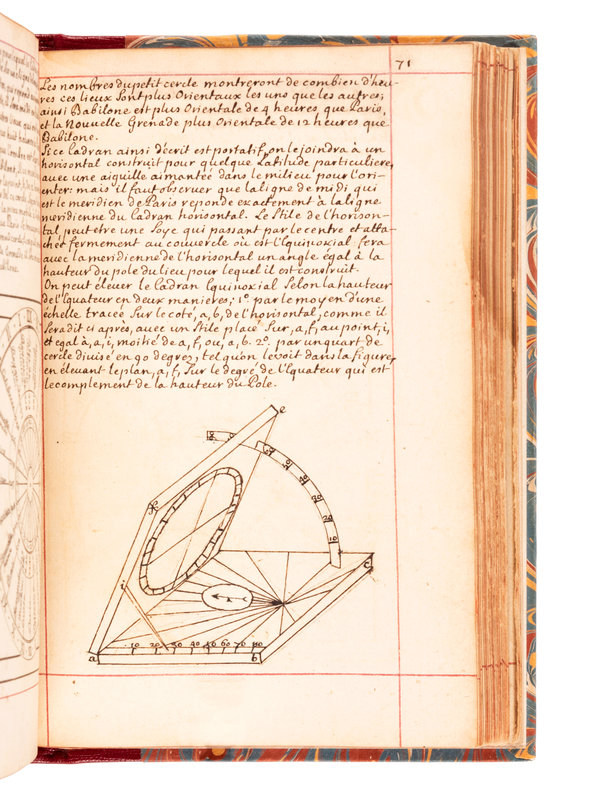 71
Les nombres du petit cercle montreront de combien d'heu-
res ces lieux Sont plus Orientaux les uns que les autres;
ainsi Babilone est plus Orientale de 4 heures que Paris,
et la Nouvelle Grenade plus Orientale de 12 heures que
Babilone.
Si ce Cadran ainsi décrit est portatif, on le joindra à un
horisontal construit pour quelque Latitude particuliere,
avec une aiguille aimantée dans le milieu pour l'ori-
enter: mais il faut observer que la ligne de midi qui
est le meridien de Paris reponde exactement à la ligne
meridienne du Cadran horisontal. Le Stile de l'horison-
tal peut etre une Soye qui passant par le centre et atta-
chée fermement au couvercle où est l'Equinoxial fera
avec la meridienne de l'horisontal un angle égal à la
hauteur du pole du lieu pour lequel il est construit.
On peut élever le Cadran Equinoxial Selon la hauteur
de l'Equateur en deux manieres; 1º. par le moyen d'une
échelle tracée Sur le coté, a, b, de l'horisontal, comme il
Sera dit ci après, avec un Stile placé Sur, a, f, au point, i,
et egal à, a, i, moitié de a, f, ou, a, b. 2º. par un quart de
cercle divisé en 90 degrez, tel qu'on le voit dans la figure,
en élevant le plan, a, f, Sur le degré de l'Equateur qui est
le complement de la hauteur du Pole.
e
f
i
c
a
b
10 20 30 40 50 60 70 80
10
20
30